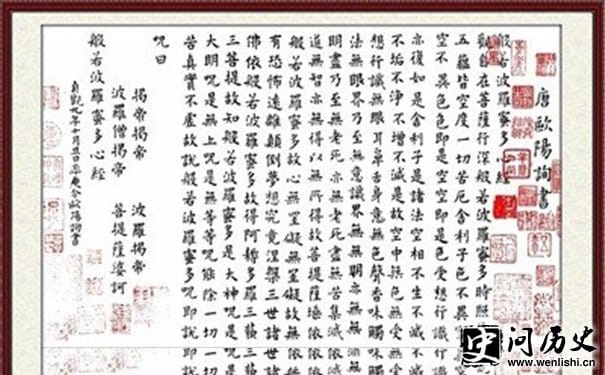 唐歐陽詢書
般若波羅蜜多心經
觀自在菩薩行深般若波羅蜜多時照
五蘊皆空度一切苦厄舍利子色不異
空不異色色即是空空即是色受想行識
亦復如是舍利子是諸法空相不生不滅
不垢不淨不增不減是故空中無色無受
想行識無眼耳鼻舌身意無色聲香味觸
法無眼界乃至無意識界無無明亦無無
明盡乃至無老死亦無老死盡無苦集滅
道無智亦無得以無所得故菩提薩埵依
般若波羅蜜多故心無罣礙無罣礙故無
有恐怖遠離顛倒夢想究竟涅槃三世諸
佛依般若波羅蜜多故得阿耨多羅三藐
三菩提故知般若波羅蜜多是大神咒是
大明咒是無上咒是無等等咒能除一切
苦真實不虛故說般若波羅蜜多咒即說
咒曰
揭帝揭帝 波羅揭帝
波羅僧揭帝 菩提薩婆訶
般若波羅蜜多心經
貞觀九年十月旦日率更令歐陽詢書
问历史
www.wenlishi.cn